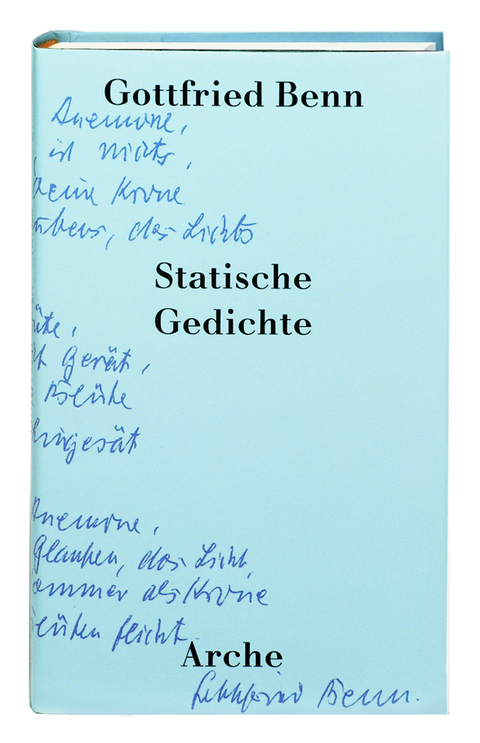 Gottfried Benn
Anemone,
, ist nichts,
deine Krone
aubens, des Lichts
Statische
Gedichte
üte,
ht gerät,
Blüte
hingesät
Anemone,
Glauben, das Licht
ommer als Krone
lüten flicht.
Arche
Gottfried Benn.